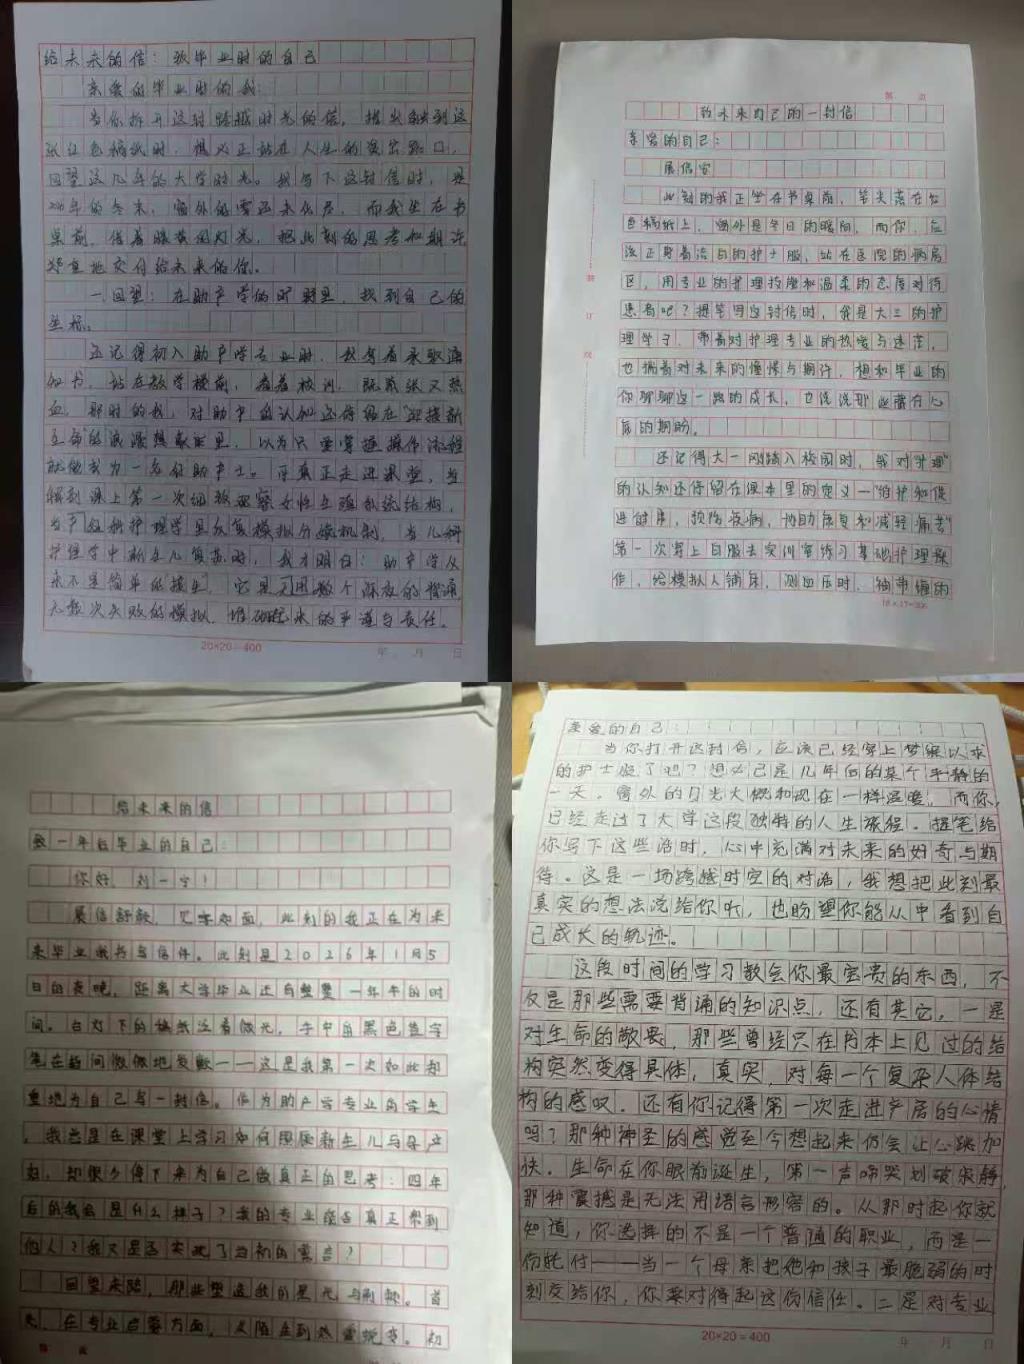 给未来的信：致毕业时的自己
亲爱的毕业时的我：
当你拆开这封跨越时光的信，指尖触到这
张红色稿纸时，想必正站在人生的路口，
回望这几年的大学时光。我写下这封信时，是
年的冬末，窗外的雪还未化尽，而我坐在书
桌前，借着暖黄的灯光，把此刻的思考和期许
郑重地交付给未来的你。
一、回望：在助产学的旷野里，找到自己的
坐标。
还记得初入助产学专业时，我攥着录取通
知书，站在教学楼前，看着校训，既紧张又热
血，那时的我，对助产的认知还停留在“迎接新
生命”的浪漫想象里，以为只要掌握操作流程
就能成为一名好助产士。可真正走进课堂，当
解剖课上第一次细致观察女性生殖系统结构，
当产妇科护理学里反复模拟分娩机制，当儿科
护理学中新生儿复苏时，我才明白：助产学从
来不是简单的接生，它是用数个深夜的背诵
无数次失败的模拟，堆砌起来的严谨与责任。
20×20=400
年 月 日
第 页
致未来自己的一封信
亲爱的自己：
展信安
此刻的我正坐在书桌前，笔尖落在红
色稿纸上，窗外是冬日的暖阳，而你，应
该正身着洁白的护士服，站在医院的病房
区，用专业的护理技能和温柔的态度对待
患者吧？提笔写这封信时，我是大三的护
理学子，带着对护理专业的热爱与迷茫，
也揣着对未来的憧憬与期许，想和毕业的
你聊聊这一路的成长，也说说那些藏在心
底的期盼。
还记得大一刚踏入校园时，我对“护理”
的认知还停留在课本里的定义—“维护和促
进健康，预防疾病，协助康复和减轻痛苦”
第一次穿上白服去实训室练习基础护理操
作，给模拟人铺床，测血压时，
装
订
线
给未来的信
致一年后毕业的自己：
你好，刘一宁！
展信舒颜，见字如面，此刻的我正在为未
来毕业我书写信件。此刻是2026年1月5
日的夜晚，距离大学毕业还有整整一年半的时
间。台灯下的稿纸泛着微光，手中的黑色签字
笔在指间微微地发颤——这是我第一次如此郑
重地为自己写一封信。作为助产学专业的学生
，我总是在课堂上学习如何照顾新生儿与孕产
妇，却很少停下来为自己做真正的思考：四年
后的我会是什么样子？我的专业能否真正帮到
他人？我又是否实现了当初的誓言？
回望来路，那些塑造我的星光与荆棘。首
先，在专业启蒙方面，从陌生到热爱蜕变。初
亲爱的自己：
当你打开这封信，应该已经穿上梦寐以求
的护士服了吧？想必已是几年后的某个平静的
一天，窗外的日光大概和现在一样温暖，而你，
已经走过了大学这段独特的人生旅程。提笔给
你写下这些话时，心中充满对未来的好奇与期
待。这是一场跨越时空的对话，我想把此刻最
真实的想法说给你听，也盼望你能从中看到自
己成长的轨迹。
这段时间的学习教会你最宝贵的东西，不
仅是那些需要背诵的知识点，还有其它，一是
对生命的敬畏，那些曾经只在书本上见过的结
构突然变得具体，真实，对每一个复杂人体结
构的感叹，还有你记得第一次走进产房的心情
吗？那种神圣的感觉至今想起来仍会让心跳加
快。生命在你眼前诞生，第一声啼哭划破寂静，
那种震撼是无法用语言形容的。从那时起你就
知道，你选择的不是一个普通的职业，而是一
份托付——当一个母亲把她和孩子最脆弱的时
刻交给你，你要对得起这份信任。二是对专业
20×20=400
年 月 日